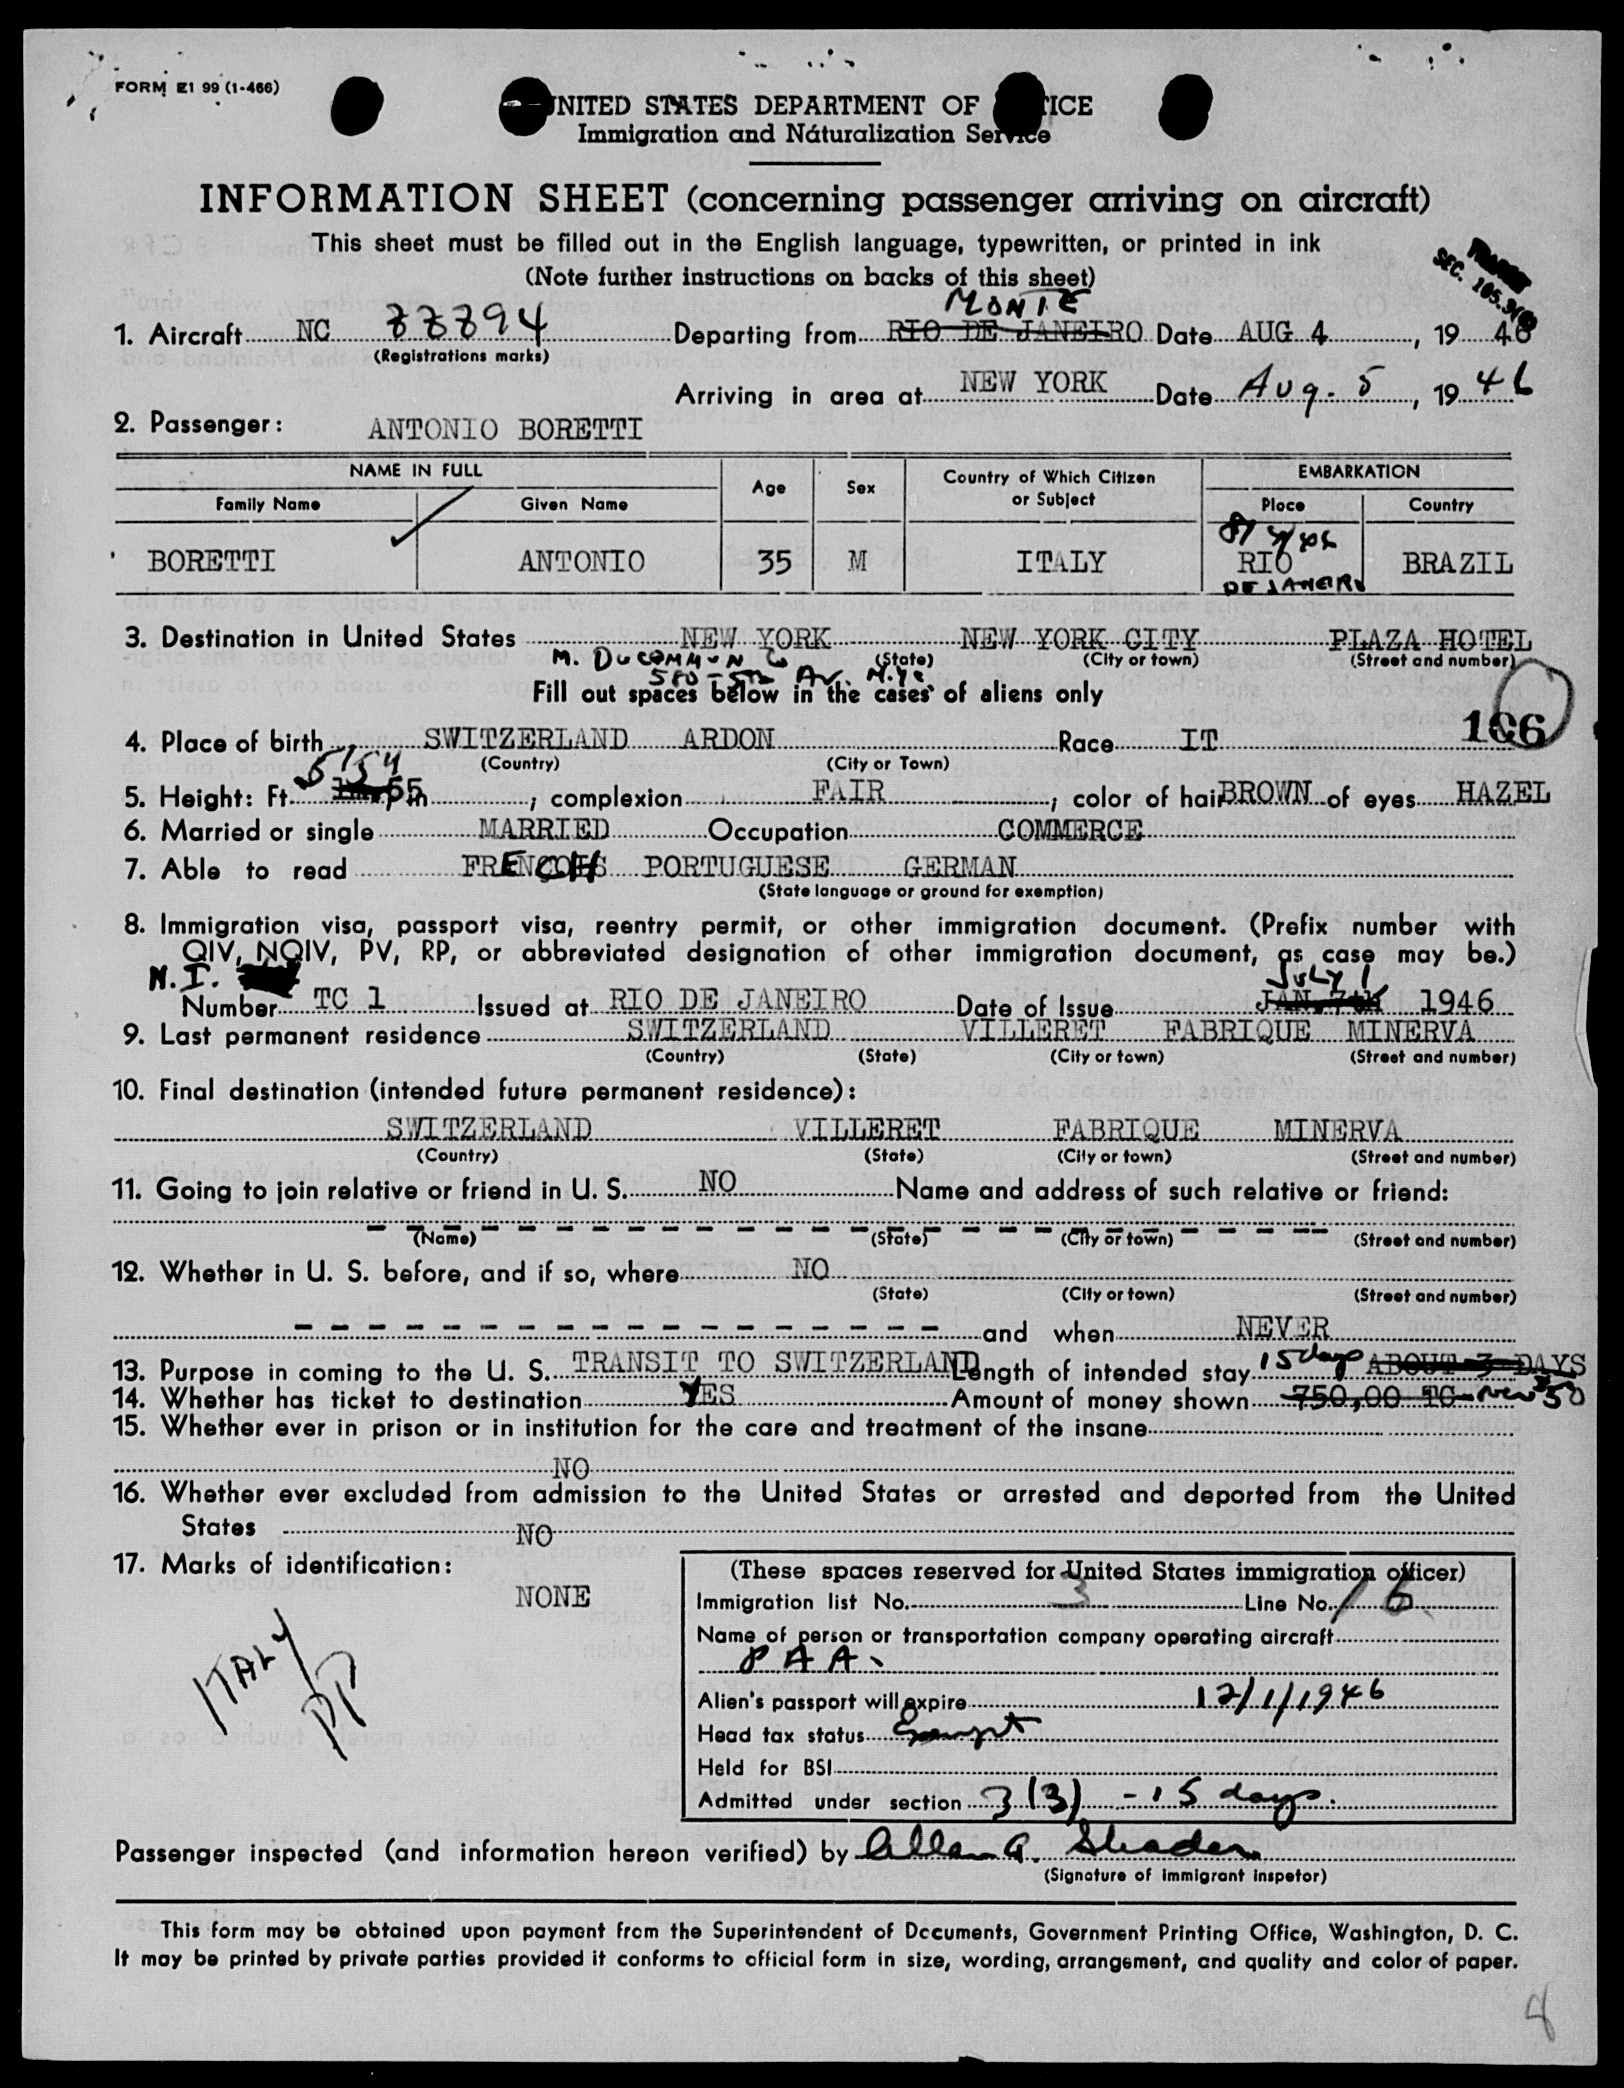 FORM E1 99 (1-466)
UNITED STATES DEPARTMENT OF TICE
Immigration and Naturalization Service
INFORMATION SHEET (concerning passenger arriving on aircraft)
This sheet must be filled out in the English language, typewritten, or printed in ink
(Note further instructions on backs of this sheet)
SEC. 105.3
MONTE
1. Aircraft NC 88894 Departing from RIO DE JANEIRO Date AUG 4, 1946
(Registrations marks)
Arriving in area at NEW YORK Date Aug. 5, 1946
2. Passenger: ANTONIO BORETTI
NAME IN FULL Age Sex Country of Which Citizen or Subject EMBARKATION
Family Name Given Name Place Country
BORETTI ANTONIO 35 M ITALY RIO BRAZIL
DE JANEIRO
3. Destination in United States NEW YORK NEW YORK CITY PLAZA HOTEL
(State) (City or town) (Street and number)
M. DUCOMMUN Co
580 - 5th Av. N.Y.C
Fill out spaces below in the cases of aliens only
166
4. Place of birth SWITZERLAND ARDON Race IT
(Country) (City or Town)
5' 5 4
5. Height: Ft. In. ; complexion FAIR ; color of hair BROWN of eyes HAZEL
6. Married or single MARRIED Occupation COMMERCE
7. Able to read FRENCH PORTUGUESE GERMAN
(State language or ground for exemption)
8. Immigration visa, passport visa, reentry permit, or other immigration document. (Prefix number with
QIV, NQIV, PV, RP, or abbreviated designation of other immigration document, as case may be.)
N.I. JULY 1
Number TC 1 Issued at RIO DE JANEIRO Date of Issue JAN. 7th 1946
9. Last permanent residence SWITZERLAND VILLERET FABRIQUE MINERVA
(Country) (State) (City or town) (Street and number)
10. Final destination (intended future permanent residence):
SWITZERLAND VILLERET FABRIQUE MINERVA
(Country) (State) (City or town) (Street and number)
11. Going to join relative or friend in U. S. NO Name and address of such relative or friend:
(Name) (State) (City or town) (Street and number)
12. Whether in U. S. before, and if so, where NO
(State) (City or town) (Street and number)
and when NEVER
13. Purpose in coming to the U. S. TRANSIT TO SWITZERLAND Length of intended stay 15 days ABOUT 3 DAYS
14. Whether has ticket to destination YES Amount of money shown 750,00 TC $50
15. Whether ever in prison or in institution for the care and treatment of the insane
NO
16. Whether ever excluded from admission to the United States or arrested and deported from the United
States NO
17. Marks of identification:
NONE
ITALY
PP
(These spaces reserved for United States immigration officer)
Immigration list No. 3 Line No. 16
Name of person or transportation company operating aircraft
PAA.
Alien's passport will expire 12/1/1946
Head tax status Exempt
Held for BSI
Admitted under section 3(3) - 15 days.
Passenger inspected (and information hereon verified) by Allan G. Shader
(Signature of immigrant inspetor)
This form may be obtained upon payment from the Superintendent of Documents, Government Printing Office, Washington, D. C.
It may be printed by private parties provided it conforms to official form in size, wording, arrangement, and quality and color of paper.
8